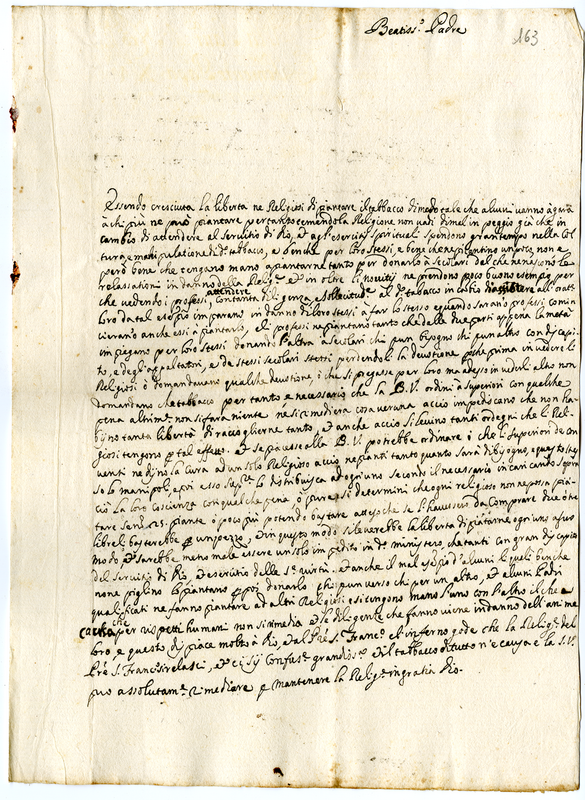 Beatiss.o Padre
163
Essendo cresciuta la libertà ne Religiosi di piantare il tabbacco di modo tale che alcuni vanno à garà
à chi più ne può piantare per tanto temendo la Religione non vadi di mal in peggio già che in
cambio di attendere al Servitio di Dio, et agl'esercitij spirituali spendono gran tempo nella Col
tura e manipulatione di d.o tabbacco, e benche per loro stessi, e bene che ne piantino un poco non e
però bene che tengano mano a piantarne tanto per donarlo à secolari del che ne nascono le
relassationi in danno della Relig.e et in oltre li novitij ne prendono poco buono esempio per
che vedendo i professi con tanta diligenza e sollecitud.e attendere al d.o tabbacco in costio
loro da tal esempio imparano in danno di loro stessi a far lo stesso e quando saranno professi comin
cieranno anche essi a piantarlo, el professi ne piantano tanto che delle due parti appena la metà
impiegano per loro stessi donando l'altra a secolari chi p un bisogno chi p un altro con
to, e degl'aspettatori, e da stessi secolari stessi perdendoli la devotione poiche prima in vedere li
Religiosi ò domandavano qualche devotione, ò che si pregasse per loro ma adesso in vederli altro non
domandano che tabbacco per tanto e necessario che la B. V. ordini a superiori con qualche
pena altrim.e non si farà niente ne si rimedierà cosa veruna acciò impediscano che non hab
bijno tanta libertà di raccoglierne tanto, et anche acciò si levino tanti ordegni che li Reli
giosi tengono p tal effetto. et se piacesse alla B. V. potrebbe ordinare i che li superiori de con
venti ne dijno la cura ad un solo Religioso acciò ne pianti tanto quanto sarà di bisogno, e questo stes
so lo manipoli, e poi esso stesso lo distribuisca ad ogn'uno secondo il necessario incaricando sopra
ciò la loro coscienza con qualche pena, ò pure si determini che ogni religioso non ne possa pian
tare se non 25. piante o poco più potendo bastare attesoche se l'havessero da comprare due o tre
libre li basterebbe p un pezzo, et in questo modo si leverebbe la libertà di piantarne ogn'uno a suo
modo et sarebbe meno male essere un solo impedito in d.o ministero, che tanti con gran discapito
del servitio di Dio, et esercitio delle s.e virtù. et anche il mal esempio d'alcuni li quali benche
none piglino lo piantano p poi donarlo chi p un verso chi per un altro, et alcuni Padri
qualificati ne fanno piantare ad altri Religiosi e si tengono mano l'uno con l'altro il che a
che per rispetti humani non si rimedia et le diligenze che fanno viene in danno dell'anime
loro e questo dispiace molto à Dio, et al Pre S. Franc.o el inferno gode che la Relig.e del
Pre S. Franc.o si relasci, et ci sij confus.e grandiss.a et il tabbacco di tutto n'e causa e la S. V.
può assolutam.e rimediare p mantenere la Relig.e in gratia Dio.